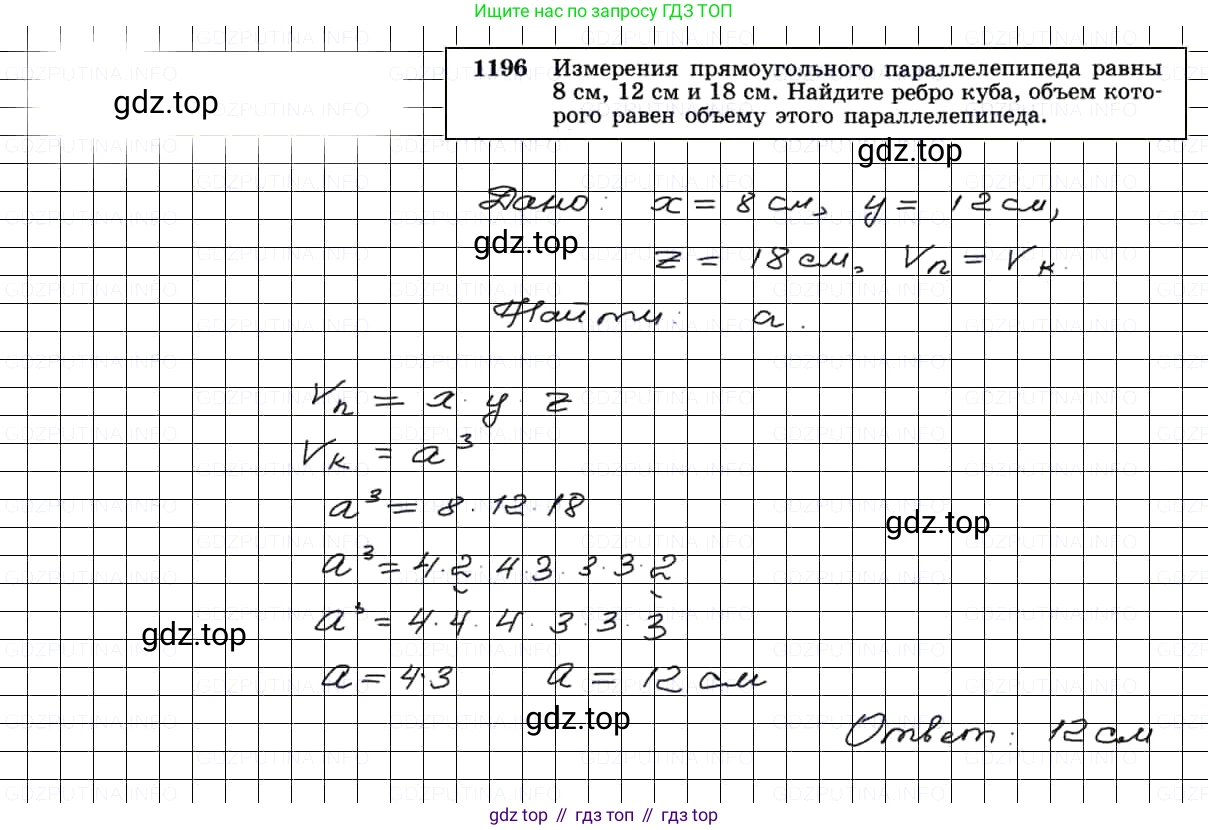 Ищите нас по запросу ГДЗ ТОП
1196 Измерения прямоугольного параллелепипеда равны
8 см, 12 см и 18 см. Найдите ребро куба, объем кото-
рого равен объему этого параллелепипеда.
gdz.top
gdz.top
Дано: x = 8 см, y = 12 см,
gdz.top
z = 18 см, Vп = Vк.
Найти: a.
Vп = x · y · z
Vк = a³
a³ = 8 · 12 · 18
gdz.top
a³ = 4 · 2 · 4 · 3 · 3 · 3 · 2
a³ = 4 · 4 · 4 · 3 · 3 · 3
gdz.top
a = 4·3 a = 12 см
gdz.top
Ответ: 12 см
gdz top // гдз топ // гдз top
GDZPUTINA.INFO